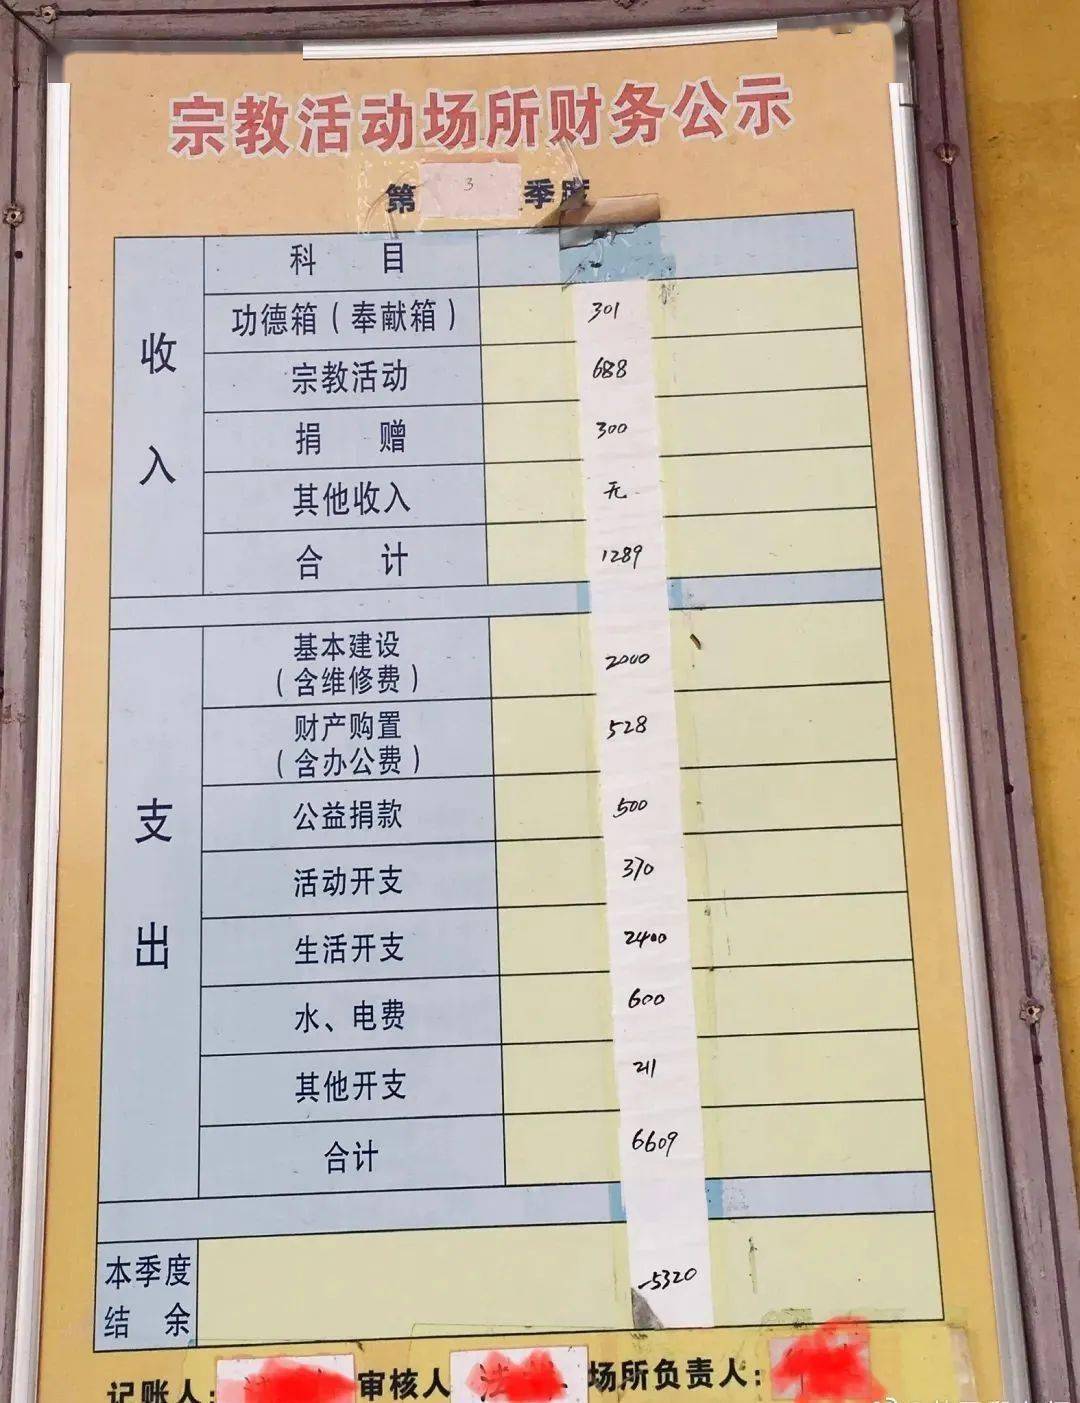 宗教活动场所财务公示
第 3 季度
收入
科目
功德箱（奉献箱） 301
宗教活动 688
捐赠 300
其他收入 无
合计 1289
支出
基本建设
（含维修费） 2000
财产购置
（含办公费） 528
公益捐款 500
活动开支 370
生活开支 2400
水、电费 600
其他开支 211
合计 6609
本季度
结余 -5320
记账人: 审核人 法 场所负责人: